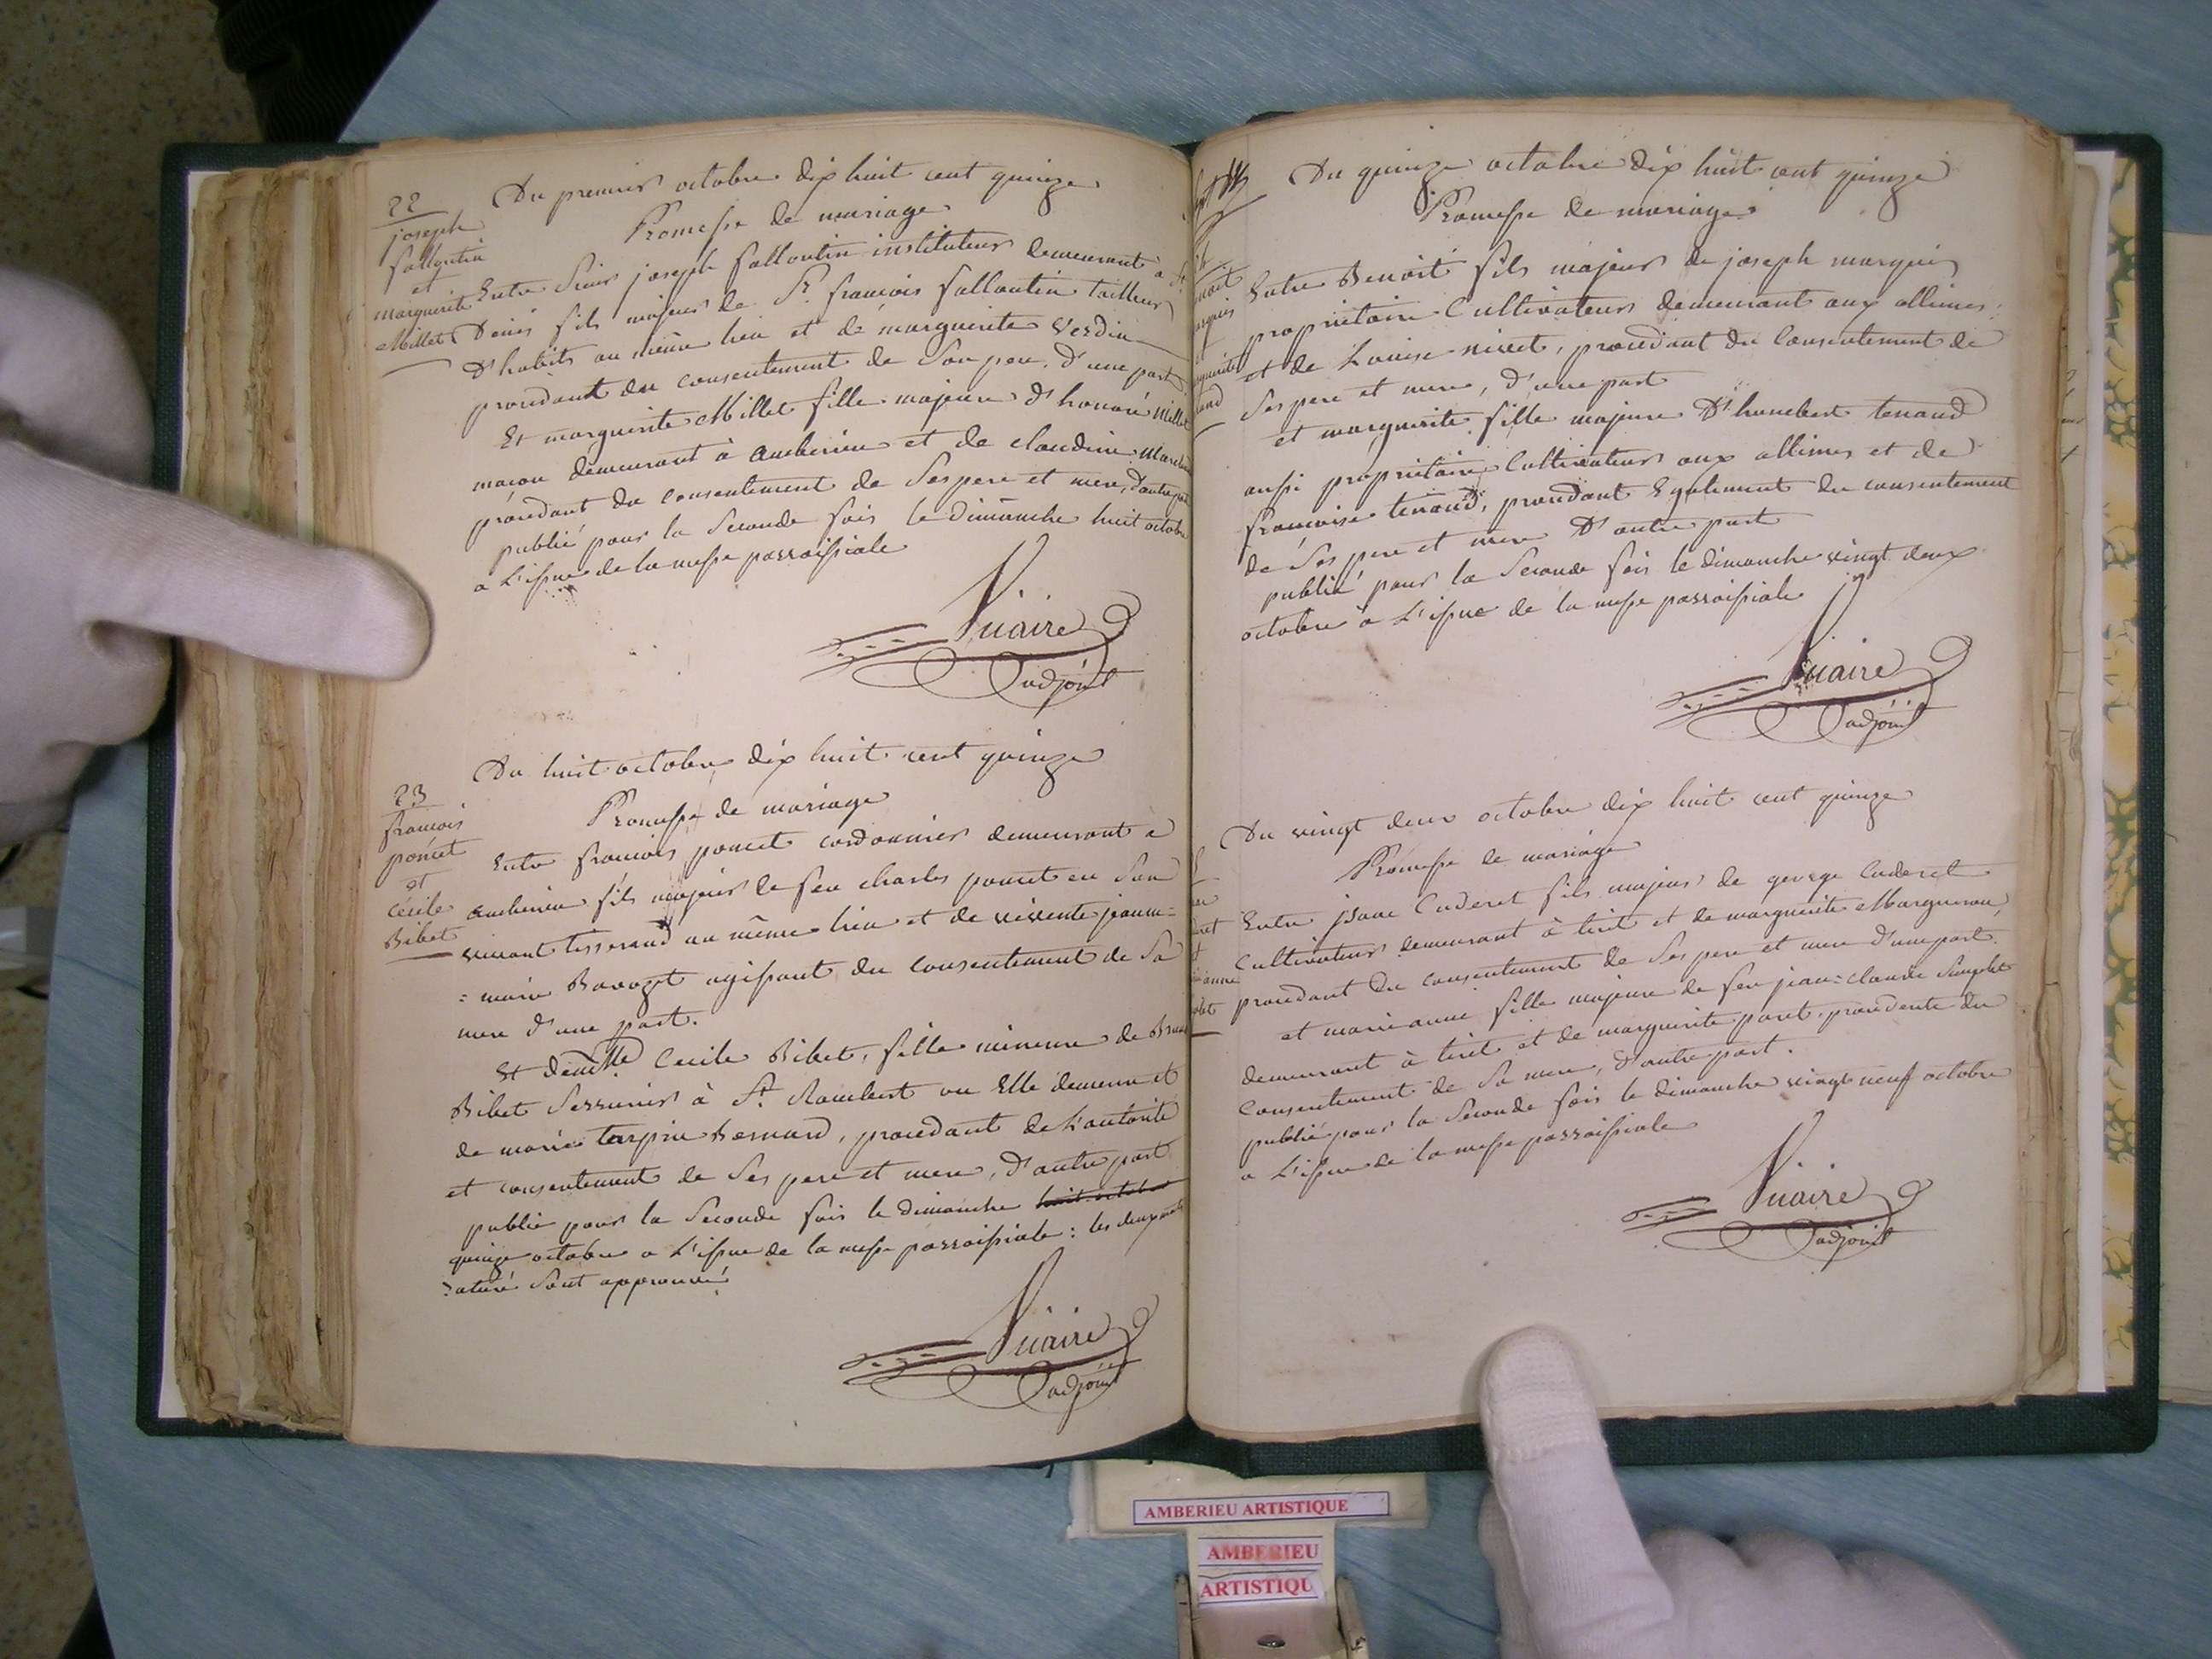 22
joseph
fallontin
et
marguerite
Millet
Du premier octobre dix huit cent quinze
Promesse de mariage
Entre Sieur joseph fallontin instituteur demeurant à St
Denis fils majeur de Sr françois fallontin tailleur
d'habits au même lieu et de marguerite Verdin
procédant du consentement de son pere, d'une part
Et marguerite Millet fille majeure d'honoré Millet
maçon demeurant à amberieu et de claudine
procédant du consentement de ses pere et mere, d'autre part
publié pour la seconde fois le dimanche huit octobre
a L'issue de la messe parroissiale
Vuaire
adjoint
23
françois
poncet
et
cécile
Bibet
Du huit octobre dix huit cent quinze
Promesse de mariage
Entre françois poncet cordonnier demeurant a
amberieu fils majeur de feu charles poncet en son
vivant tisserand au même lieu et de vivente jeanne=
=marie agissant du consentement de sa
mere d'une part.
Et demlle Cecile Bibet, fille mineure de
Bibet Serrurier à St Rambert ou Elle demeure et
de marie tarpin Bernard, procedant de L'autorité
et consentement de ses pere et mere, d'autre part
publié pour la seconde fois le dimanche huit octobre
quinze octobre a L'issue de la messe parroissiale : les deux mots
raturé sont approuvé
Vuaire
adjoint
Du quinze octobre dix huit cent quinze
Promesse de mariage
Entre Benoit fils majeur de joseph marquis
propriétaire Cultivateur demeurant aux allimes
et de Louise nivet, procédant du consentement de
ses pere et mere, d'une part
et marguerite fille majeure d'humbert tenand
aussi propriétaire Cultivateur aux allimes et de
françoise tenand, procédant Egalement du consentement
de ses pere et mere d'autre part
publié pour la seconde fois le dimanche vingt deux
octobre a L'issue de la messe parroissiale
Vuaire
adjoint
Du vingt deux octobre dix huit cent quinze
Promesse de mariage
Entre jsaac Cuderet fils majeur de george Cuderet
Cultivateur demeurant à tiret et de marguerite Marguerau,
procédant du consentement de ses pere et mere d'une part.
et marieanne fille majeure de feu jean=claude
demeurant à tiret et de marguerite poret, procedente du
Consentement de sa mere, d'autre part.
publié pour la seconde fois le dimanche vingt neuf octobre
a L'issue de la messe parroissiale
Vuaire
adjoint
AMBERIEU ARTISTIQUE
AMBERIEU
ARTISTIQU